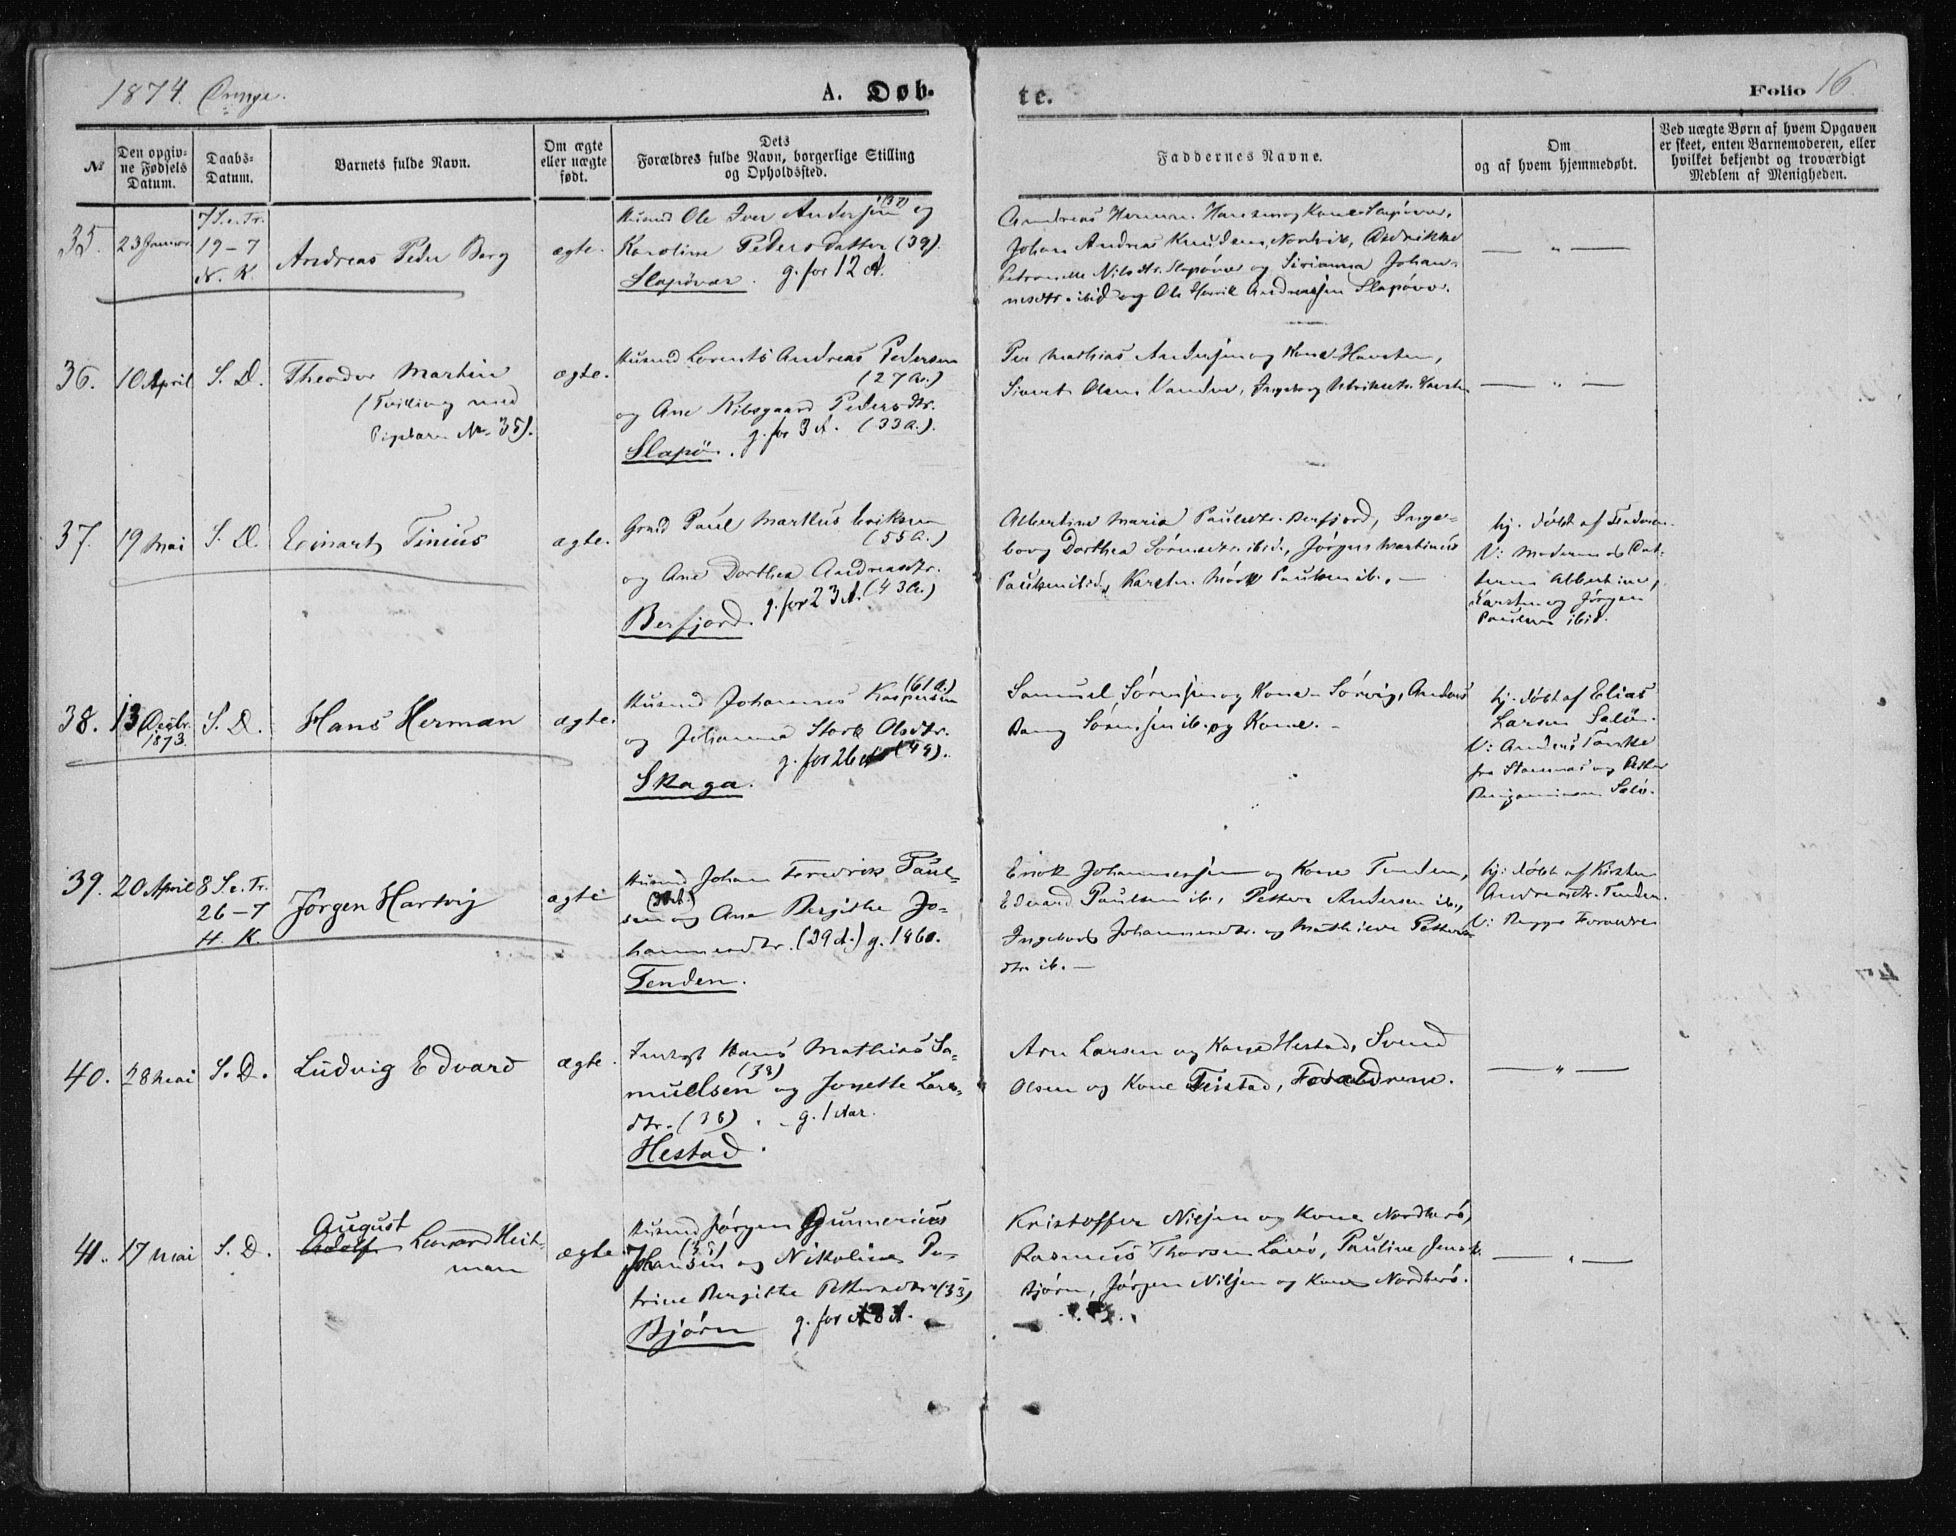 1874. Drenge.
A. Døb-
te.
Folio 16.
№
Den opgiv-
ne Fødsels
Datum.
Daabs-
Datum.
Barnets fulde Navn.
Om ægte
eller uægte
født.
Dets
Forældres fulde Navn, borgerlige Stilling
og Opholdssted.
Faddernes Navne.
Om
og af hvem hjemmedøbt.
Ved uægte Børn af hvem Opgaven
er skeet, enten Barnemoderen, eller
hvilket bekjendt og troværdigt
Medlem af Menigheden.
35.
23 Januar
7 S. e. Tr.
19-7
N. K.
Andreas Peder Berg
ægte.
Husmd Ole Iver Andersen og
Karoline Pedersdatter (39).
Slapøvær. g. for 12 A.
Andreas Herman Hansen og Kone Slapøvær,
Johan Andreas Knudsen Nordvik,
Petronelle Nilsdtr. Slapøvær og Sirianna Johan-
nesdtr. ibid og Ole Henrik Andreassen Slapøvær.
— " —
36.
10 April
S. D.
Theodor Martin
(Tvilling med
Pigebarn No. 35).
ægte.
Husmd Lorents Andreas Pedersen
(27 A.)
og Ane Nibsgaard Pedersdtr.
g. for 3 A. (33 A.).
Slapø.
Per Mathias Andersen og Kone Havsten,
Sivert Olsen Vandve, Ingeborg Henriksdtr.
— " —
37.
19 Mai
S. D.
Einart Tinius
ægte.
Grmd Paul Markus Eriksen
(55 A.)
og Ane Dorthea Andreasdtr.
g. for 23 A. (43 A.)
Berfjord.
Albertine Maria Paulsdtr. Berfjord, Inge-
borg Dorthea Sørensdtr. ibid., Jørgen Martinus
Paulsen ibid, Karsten Mørk Paulsen ib. —
hj. døbt af Faderen.
V: Moderen og Dat-
teren Albertine,
Karsten og Jørgen
Paulsen ibid.
38.
13 Decbr.
1873.
S. D.
Hans Herman
ægte.
(61 A.)
Husmd Johannes Kaspersen
og Johanna Stork Olsdtr.
g. for 26 A. (49).
Skaga.
Samuel Sørensen og Kone Sørvig, Anders
Bang Sørensen ib. og Kone. —
hj. døbt af Elias
Larsen Salø.
V: Anders Tonske
fra Stamnes og Petter
Benjaminsen Salø.
39.
20 April
8 S. e. Tr.
26-7
H. K.
Jørgen Hartvig
ægte
Husmd Johan Fredrik Paul-
sen og Ane Bergithe Jo-
hannesdtr. (29 A.) g. 1860.
Tenden.
Erick Johannessen og Kone Tenden,
Edvard Paulsen ib., Petter Andersen ib.,
Ingeborg Johannesdtr. og Mathilde Petters-
dtr. ib. —
hj. døbt af Kirsten
Andreasdtr. Tenden.
V: Begge Forældre
40.
28 Mai
S. D.
Ludvig Edvard
ægte.
Indtgt Hans Mathias Sa-
(38)
muelsen og Jonette Lars-
dtr. (36). — g. 1 Aar.
Hestad.
Arn Larsen og Kone Hestad, Svend
Olsen og Kone Teistad, Forældrene.
— " —
41.
17 Mai
S. D.
August
Adolf Leonard Heit-
man
ægte
Husmd Jørgen Gunnerius
Johansen og Nikoline Pe-
trine Bergithe Pettersdtr. (33)
Bjørn g. for 8 A.
Kristoffer Nilsen og Kone Nordherø,
Rasmus Thorsen Løvø, Pauline Jensdtr.
Bjørn, Jørgen Nilsen og Kone Nordherø.
— " —